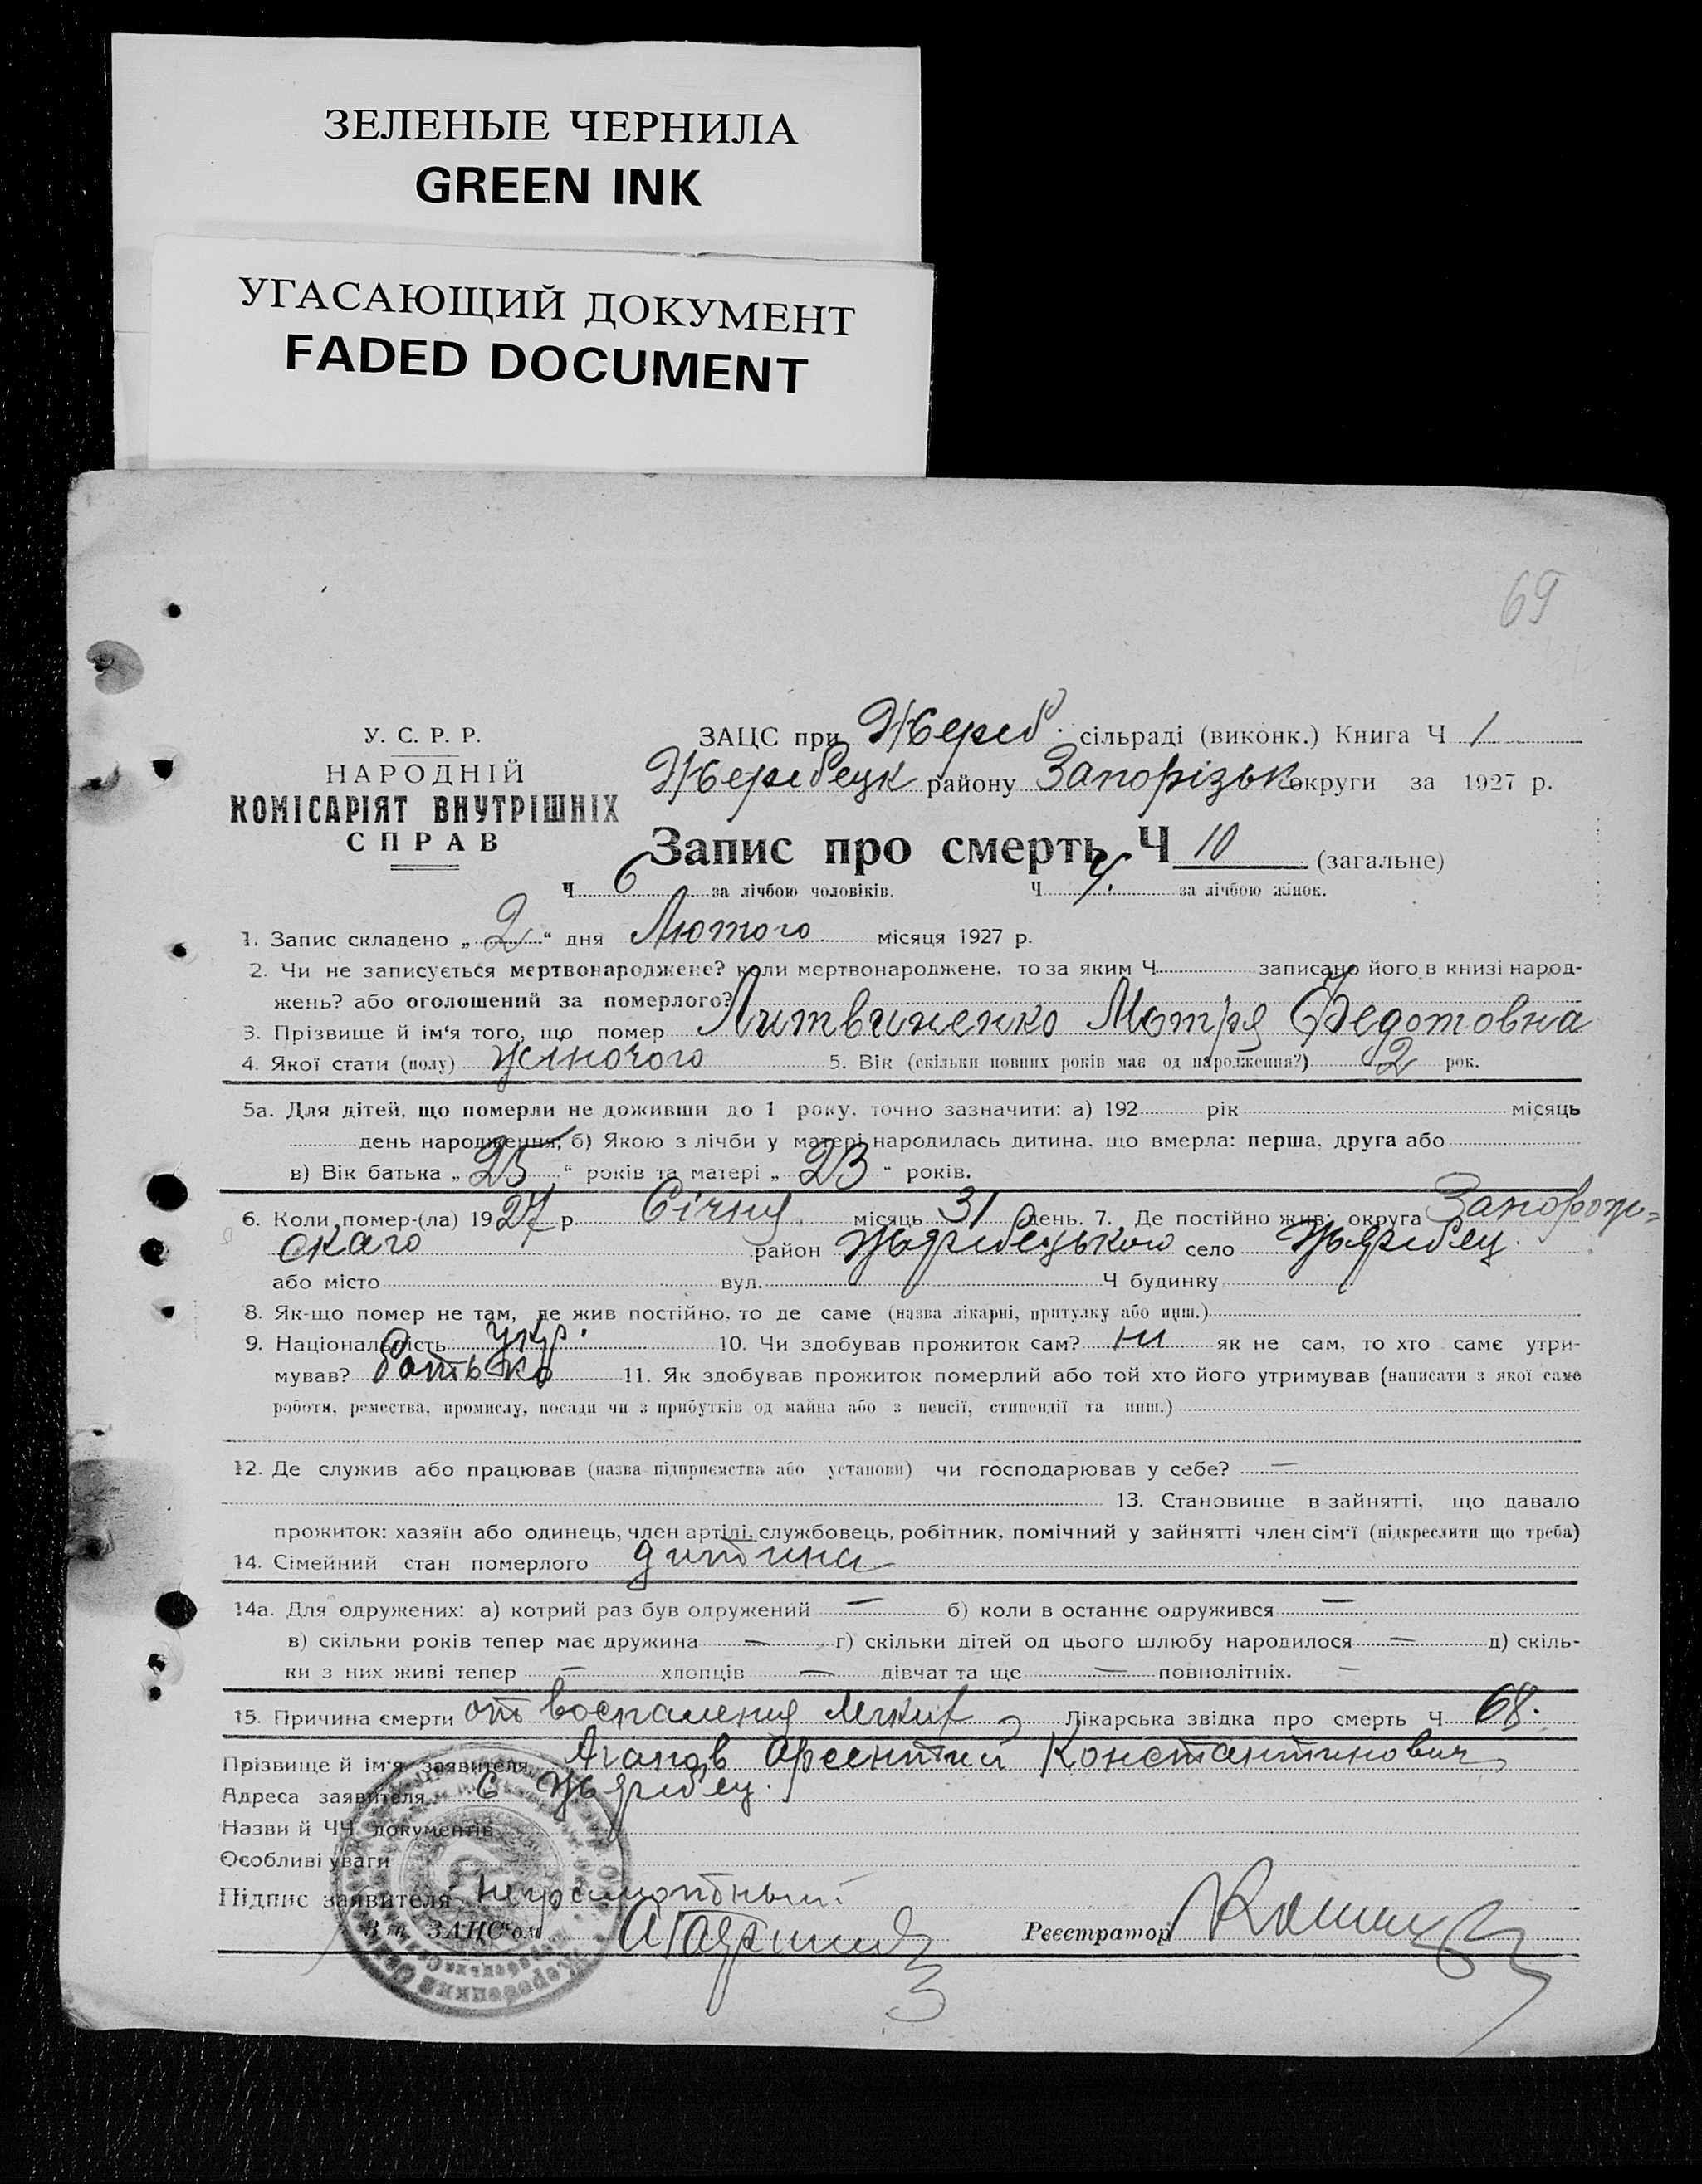 ЗЕЛЕНЫЕ ЧЕРНИЛА
GREEN INK
УГАСАЮЩИЙ ДОКУМЕНТ
FADED DOCUMENT
69
У. С. Р. Р.
НАРОДНІЙ
КОМІСАРІЯТ ВНУТРІШНІХ
СПРАВ
ЗАЦС при Жереб. сільраді (виконк.) Книга Ч 1
Жеребецк району Запорізьк округи за 1927 р.
Запис про смерть Ч 10 (загальне)
Ч 6 за лічбою чоловіків. Ч 4. за лічбою жінок.
1. Запис складено „ 2 “ дня Лютого місяця 1927 р.
2. Чи не записується мертвонароджене? коли мертвонароджене, то за яким Ч записано його в книзі народ-
жень? або оголошений за померлого?
3. Прізвище й ім'я того, що помер Литвиненко Мотря Федотовна
4. Якої стати (полу) жіночого 5. Вік (скільки повних років має од народження?) 2 рок.
5а. Для дітей, що померли не доживши до 1 року, точно зазначити: а) 192 рік місяць
день народження; б) Якою з лічби у матері народилась дитина, що вмерла: перша, друга або
в) Вік батька „ 25 “ років та матері „ 23 “ років.
6. Коли помер-(ла) 1927 р. Січня місяць 31 день. 7. Де постійно жив: округа Запорож=
скаго район Жеребецького село Жеребец.
або місто вул. Ч будинку
8. Як-що помер не там, де жив постійно, то де саме (назва лікарні, притулку або инш.)
9. Національність укр. 10. Чи здобував прожиток сам? ні як не сам, то хто саме утри-
мував? батько 11. Як здобував прожиток померлий або той хто його утримував (написати з якої саме
роботи, ремества, промислу, посади чи з прибутків од майна або з пенсії, стипендії та инш.)
12. Де служив або працював (назва підприємства або установи) чи господарював у себе? —
13. Становище в зайнятті, що давало
прожиток: хазяїн або одинець, член артілі, службовець, робітник, помічний у зайнятті член сім'ї (підкреслити що треба)
14. Сімейний стан померлого дитина
14а. Для одружених: а) котрий раз був одружений — б) коли в останнє одружився —
в) скільки років тепер має дружина — г) скільки дітей од цього шлюбу народилося — д) скіль-
ки з них живі тепер — хлопців — дівчат та ще — повнолітніх. —
15. Причина смерти от воспаления легких Лікарська звідка про смерть Ч 68.
Прізвище й ім'я заявителя Агапов Арсентий Константинович
Адреса заявителя С Жеребец.
Назви й ЧЧ документів
Особливі уваги
Підпис заявителя неграмотный
Зав. ЗАЦС'ом Реєстратор